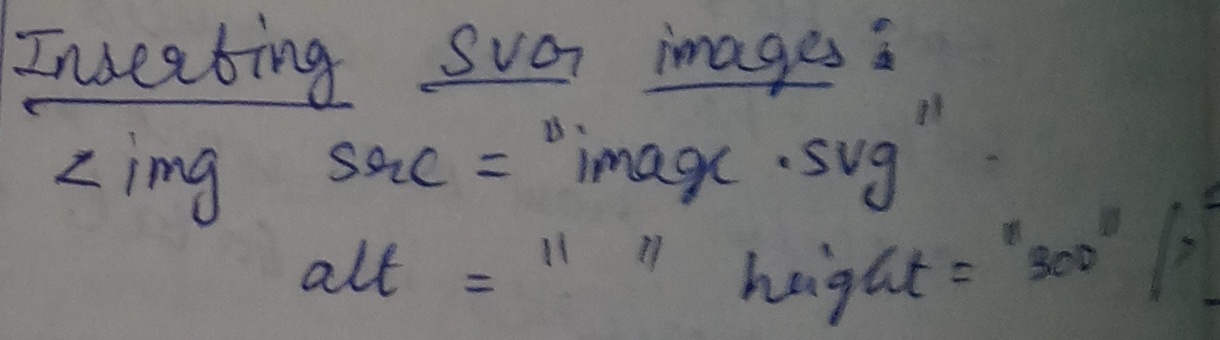 Inserting SVG images:
<img src = "image .svg"
alt = " " height = "300" />